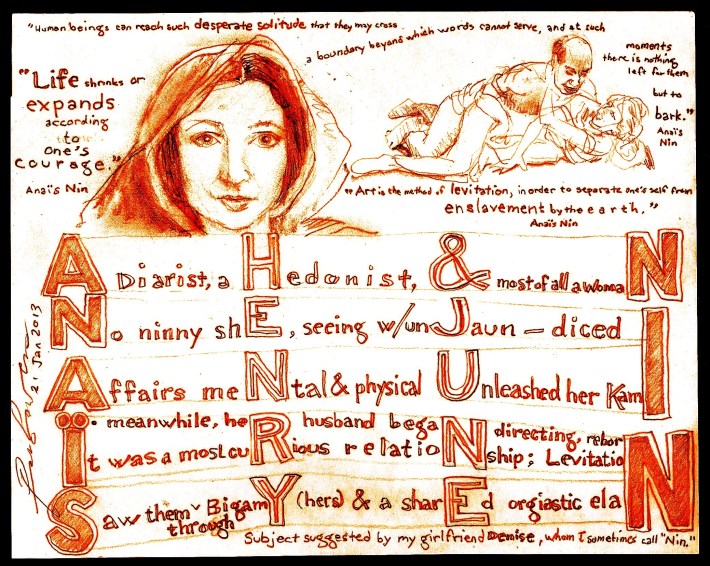 "Human beings can reach such desperate solitude that they may cross
a boundary beyond which words cannot serve, and at such
moments
there is nothing
left for them
but to
bark."
Anaïs
Nin
"Life shrinks or
expands
according
to
one's
courage."
Anaïs Nin
"Art is the method of levitation, in order to separate one's self from
enslavement by the earth."
Anaïs Nin
A Diarist, a Hedonist, & most of all a womaN
No ninny shE, seeing w/unJaun-diced I
Affairs meNtal & physical Unleashed her Kam
meanwhile, heR husband begaN directing, rebor
Ït was a most cuRious relatioNship; LevitatioN
Saw them through BigamY (hers) & a sharEd orgiastic elaN
21 Jan 2013
Subject suggested by my girlfriend Denise, whom I sometimes call "Nin."